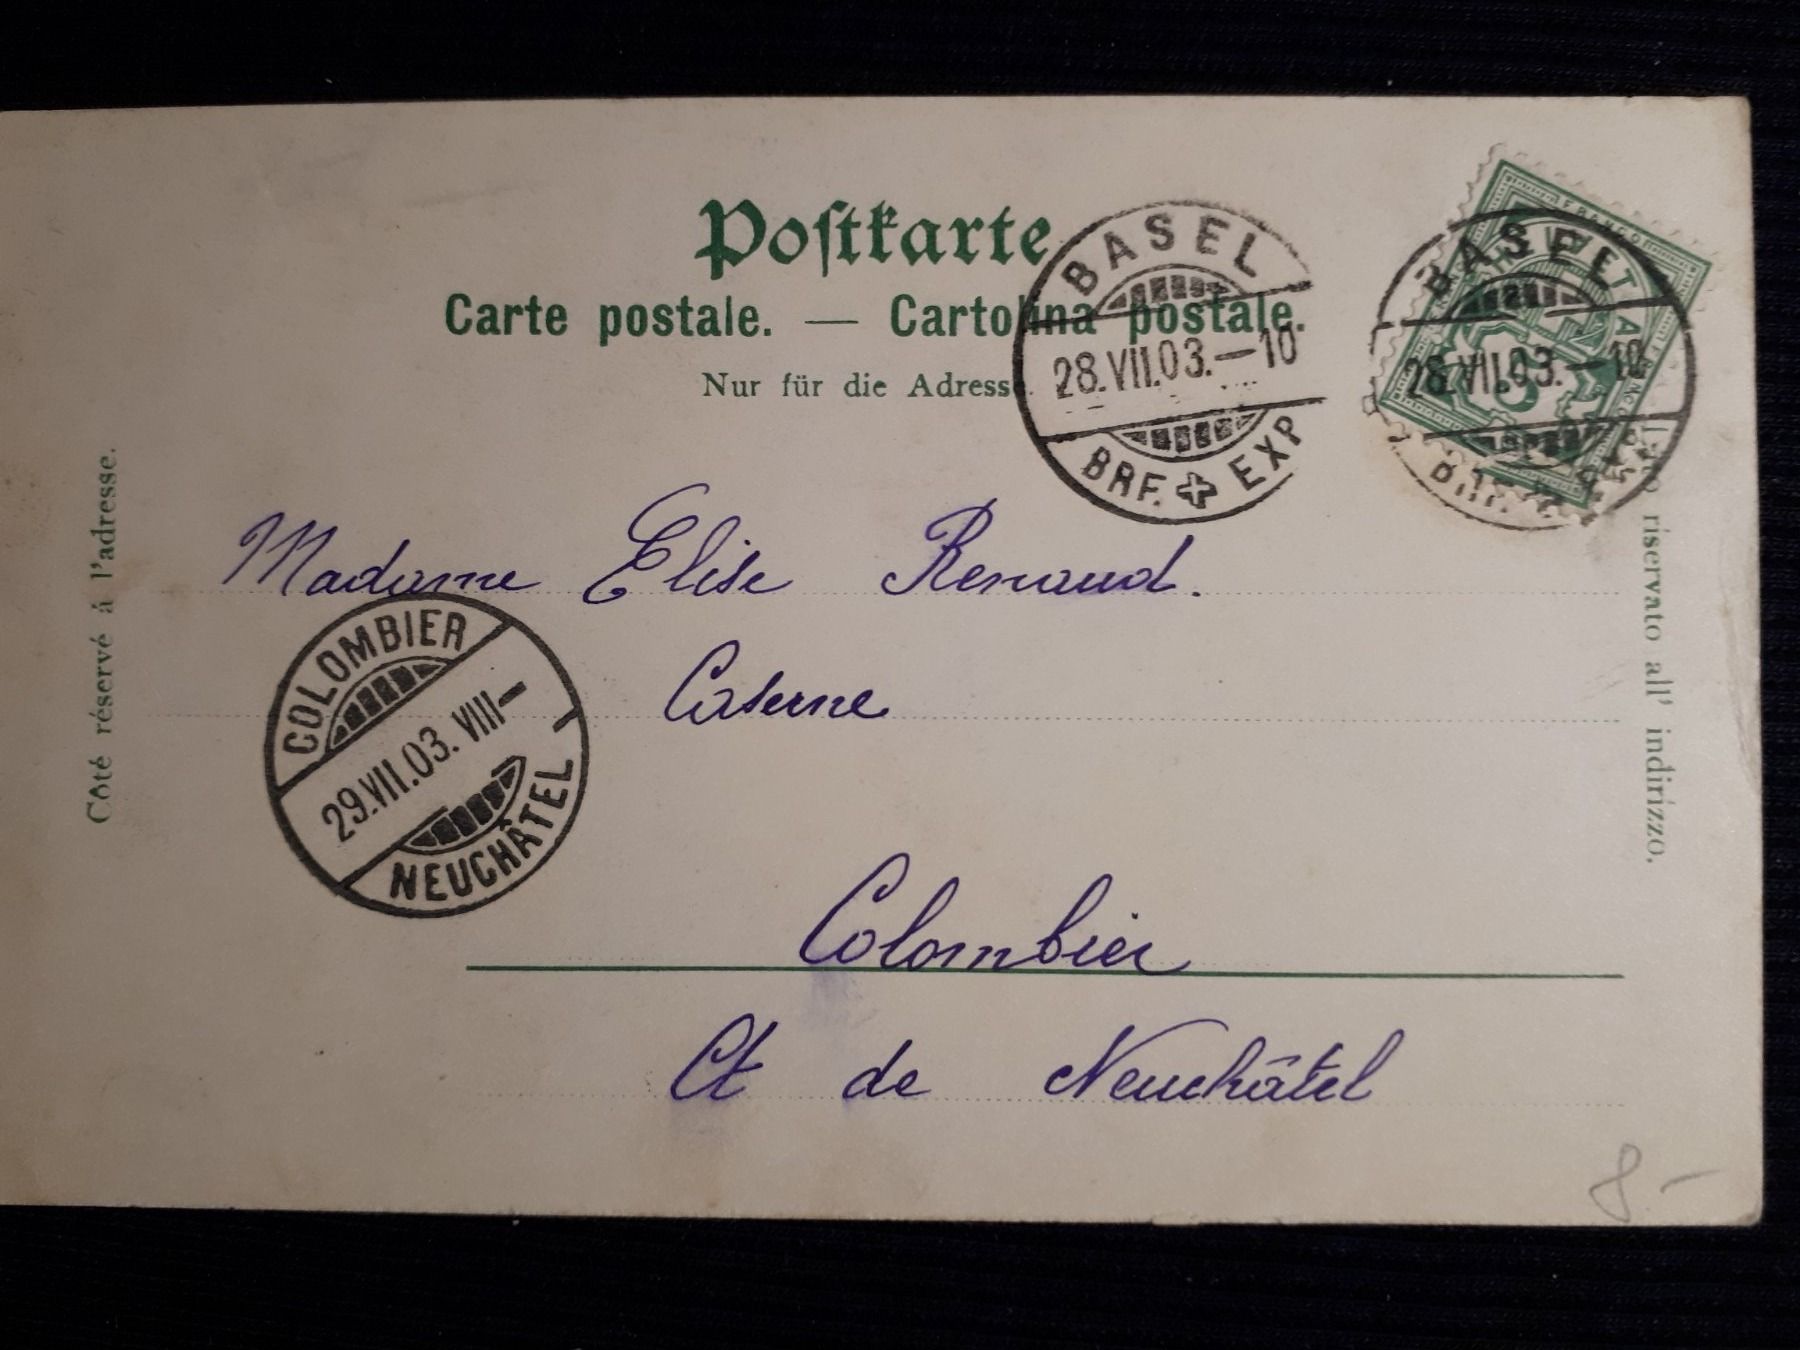 Postkarte
Carte postale. — Cartolina postale.
Nur für die Adresse.
BASEL
28.VII.03.—10
BRF. EXP
FRANCO
HELVETIA
5
BASEL
28.VII.03.—10
Côté réservé á l'adresse.
riservato all' indirizzo.
Madame Elise Renaud.
Caserne
COLOMBIER
29.VII.03. VIII—
NEUCHÂTEL
Colombier
Ct de Neuchâtel
8-